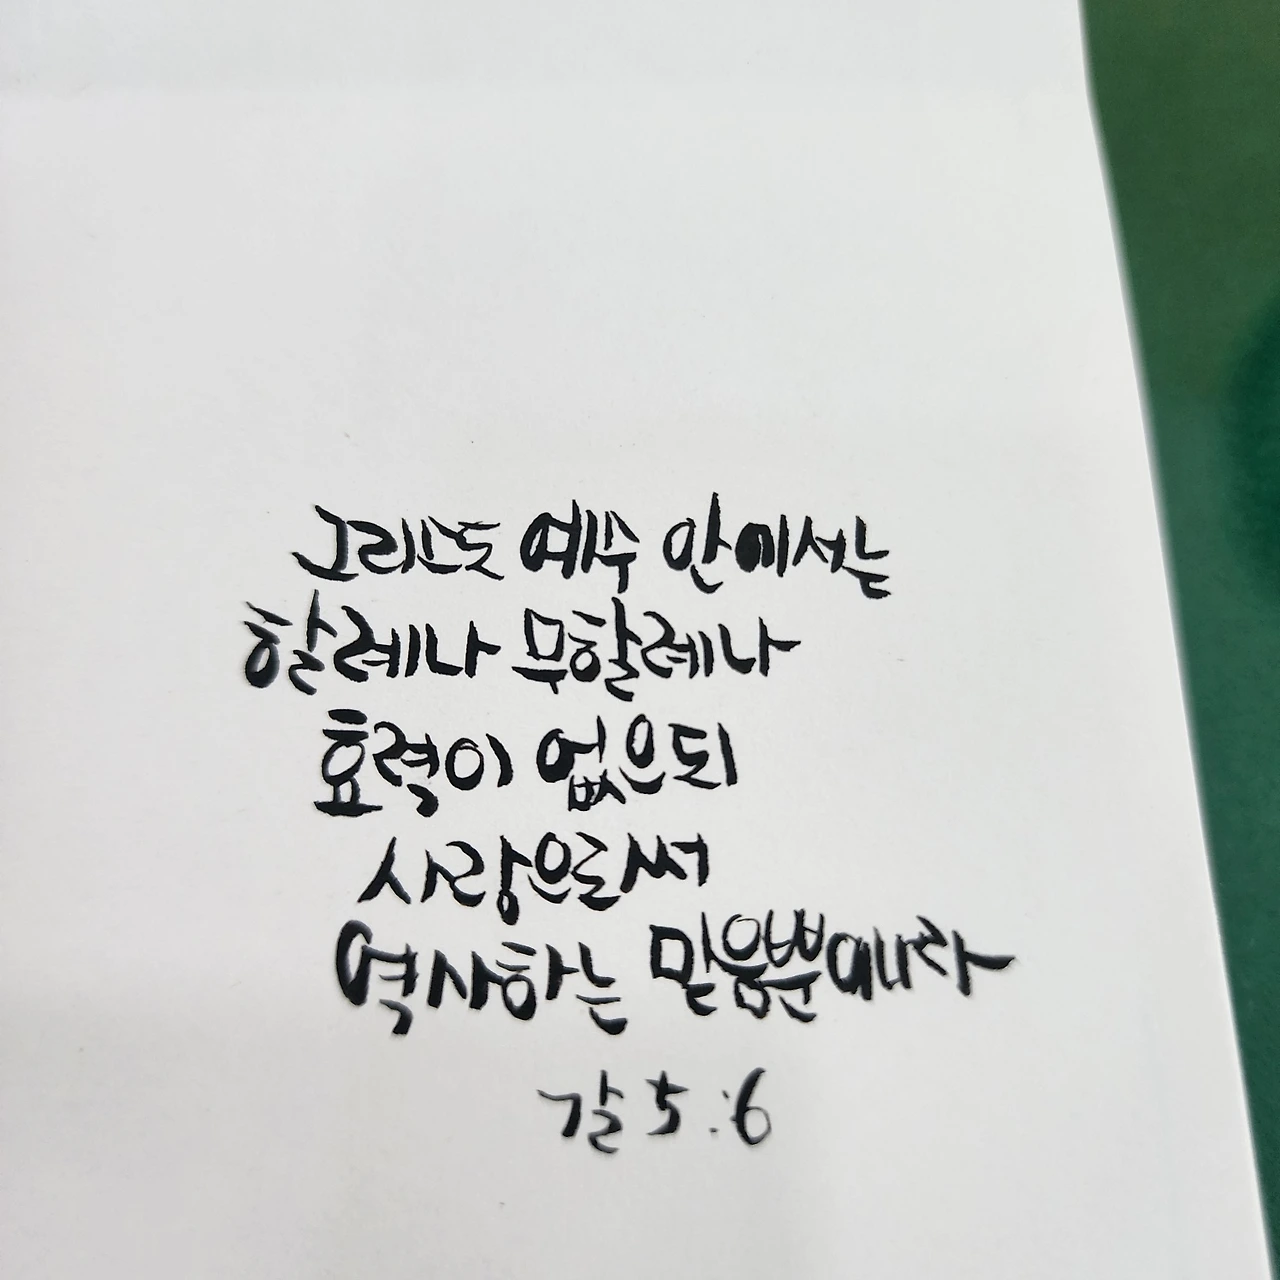 그리스도 예수 안에서는
할례나 무할례나
효력이 없으되
사랑으로써
역사하는 믿음뿐이니라
갈 5:6